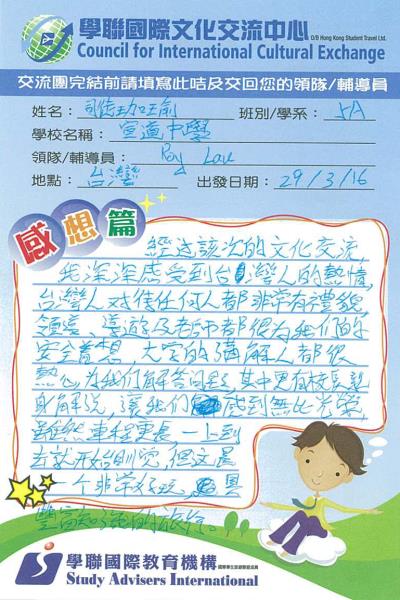 學聯國際文化交流中心
O/B Hong Kong Student Travel Ltd.
Council for International Cultural Exchange
交流團完結前請填寫此咭及交回您的領隊/輔導員
姓名：司徒珈瑜 班別/學系：5A
學校名稱：宣道中學
領隊/輔導員：Roy Lau
地點：台灣 出發日期：29/3/16
感想篇
經過該次的文化交流,
我深深感受到台灣人的熱情,
台灣人对待任何人都非常有禮貌,
領隊、導遊及老師都很為我們的
安全着想,大学的講解人都很
熱心為我們解答問題,其中更有校長親
身解说,讓我們感到無比光榮,
雖然車程更長,一上到
去就开始瞓覺,但這是
一个非常好玩,具
豐富知識的旅行。
學聯國際教育機構
Study Advisers International